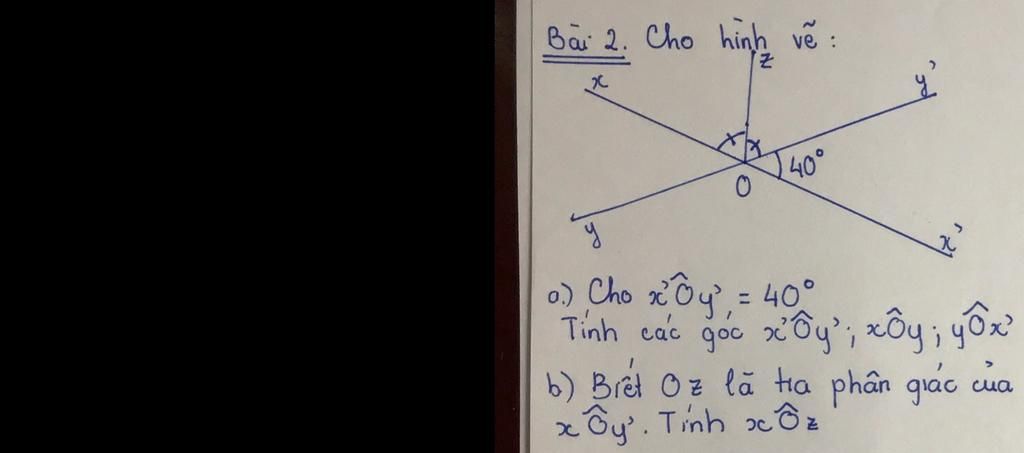 Bài 2. Cho hình vẽ:
z
x
y'
40°
O
y
x'
a.) Cho x'Ôy' = 40°
Tính các góc x'Ôy'; xÔy; yÔx'
b) Biết Oz là tia phân giác của
xÔy'. Tính xÔz